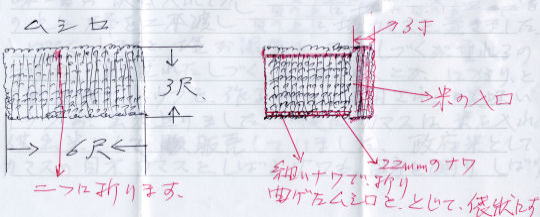 ムシロ
3尺、
6尺
二つに折ります。
3寸
米の入口
22mmのナワ
細いナワで、折り
曲げたムシロを、とじて、俵状にす